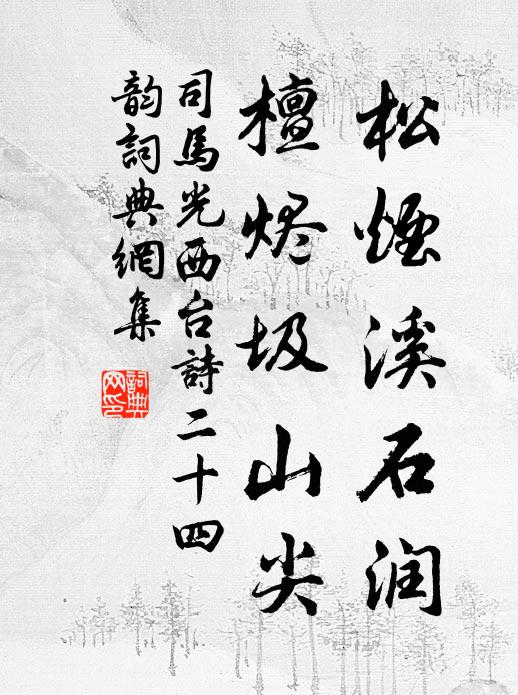 松煙溪石润
檀烬圾山尖
司馬光西台詩二十四
韵詞典網集
詞典
网印